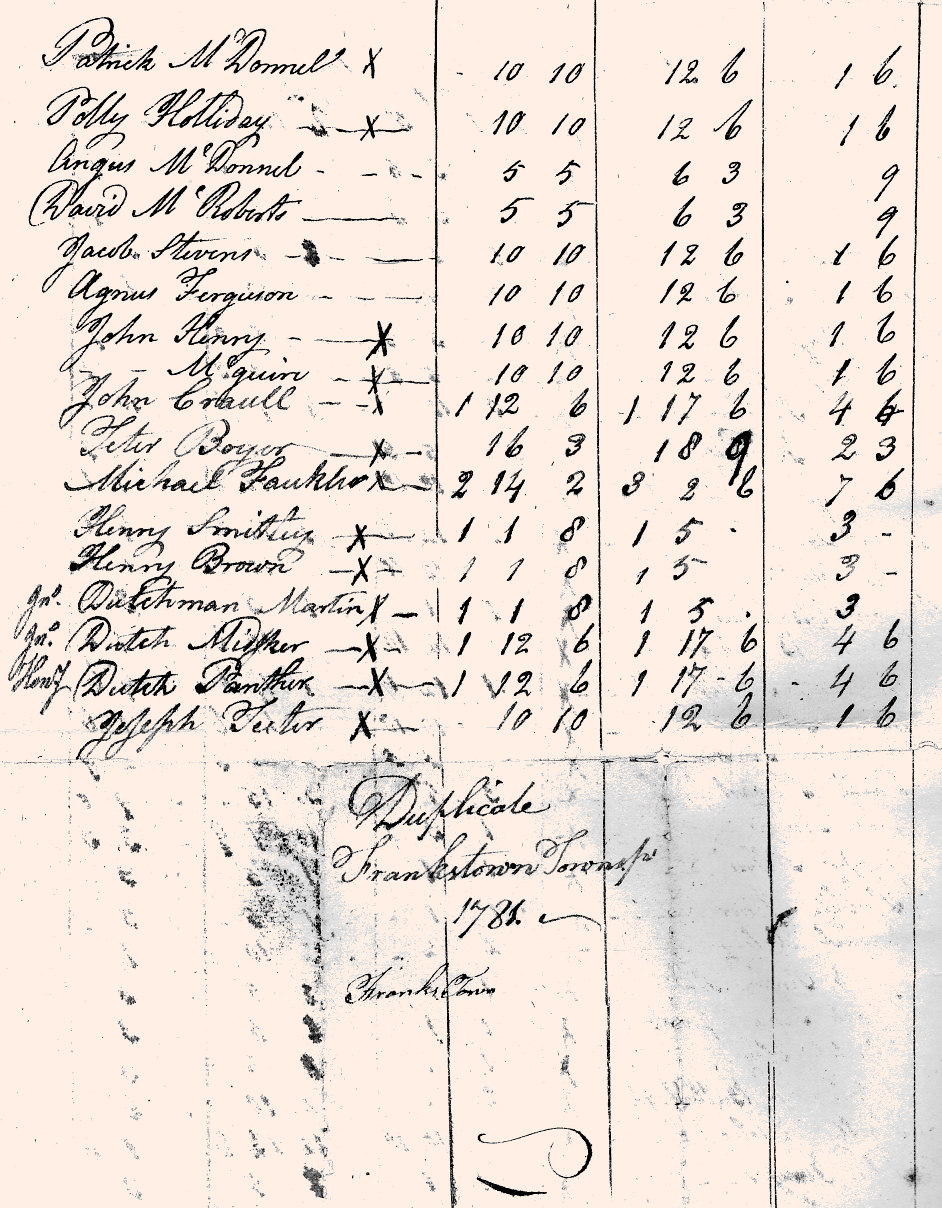 Patrick McDonnel X - 10 10 12 6 1 6
Polly Holliday - X - 10 10 12 6 1 6
Angus McDonnel - - - - 5 5 6 3 9
David McRoberts — 5 5 6 3 9
Jacob Stevens - - 10 10 12 6 1 6
Agnus Ferguson - - - 10 10 12 6 1 6
John Henry - - X 10 10 12 6 1 6
- - McGuire - X - 10 10 12 6 1 6
John Craull - - X 1 12 6 1 17 6 4 6
Peter Boyer - X - 16 3 18 9 2 3
Michael Faukler X - 2 14 2 3 2 6 7 6
Henry Smithy - X - 1 1 8 1 5 - 3 -
Henry Brown - X - 1 1 8 1 5 3 -
Jno. Dutchman Martin X - 1 1 8 1 5 . 3
Jno. Dutch - X - 1 12 6 1 17 6 4 6
Henry Dutch Panther - X - 1 12 6 1 17 - 6 - 4 6
Joseph Teeter X - - 10 10 12 6 1 6
Duplicate
Frankstown Township
1781.
Franks Town